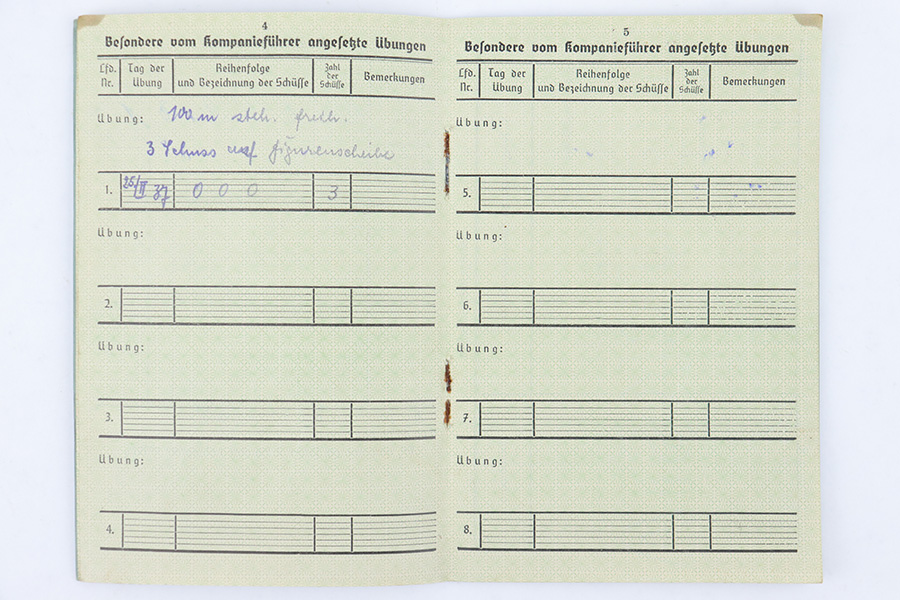 4
Besondere vom Kompanieführer angesetzte Übungen
Lfd. Nr. Tag der Übung Reihenfolge und Bezeichnung der Schüsse Zahl der Schüsse Bemerkungen
Übung: 100 m steh. freih.
3 Schuss auf Figurenscheibe
1. 25/II 37 0 0 0 3
Übung:
2.
Übung:
3.
Übung:
4.
5
Besondere vom Kompanieführer angesetzte Übungen
Lfd. Nr. Tag der Übung Reihenfolge und Bezeichnung der Schüsse Zahl der Schüsse Bemerkungen
Übung:
5.
Übung:
6.
Übung:
7.
Übung:
8.